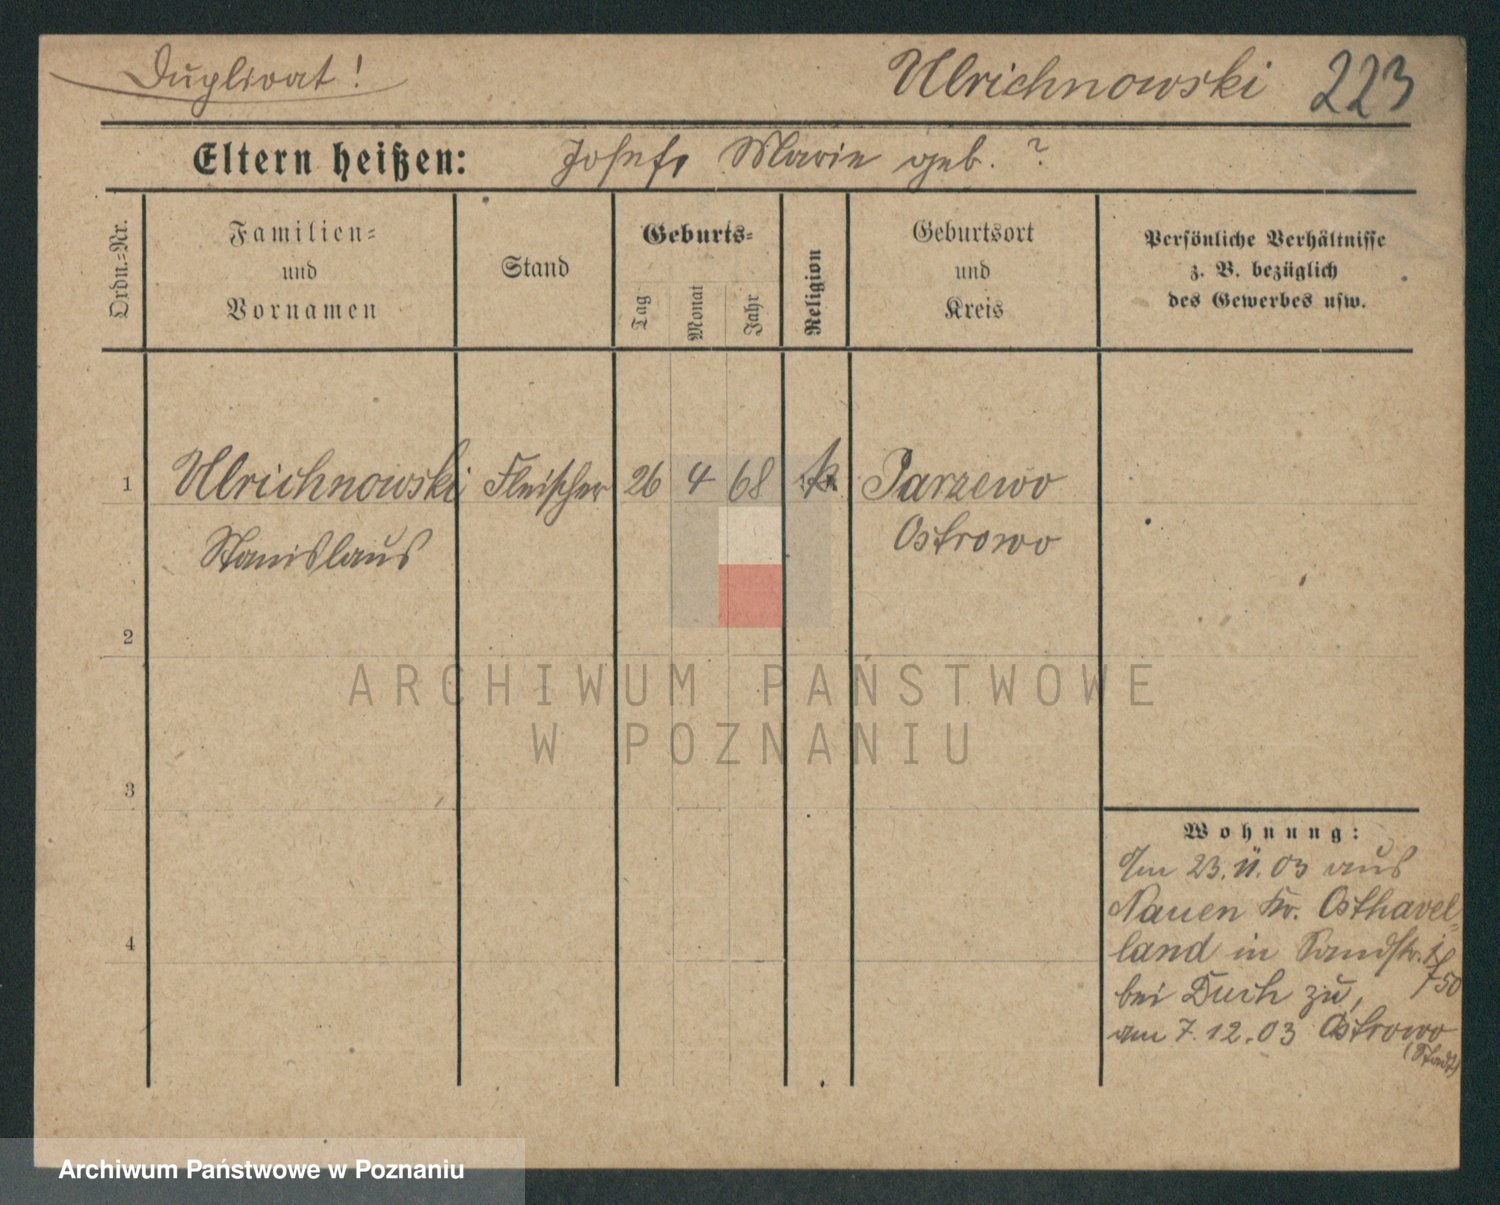 Duplicat!
Ulrichnowski 223
Eltern heißen: Josef, Marie geb. ?
Ordn.-Nr.
Familien-
und
Vornamen
Stand
Geburts-
Tag
Monat
Jahr
Religion
Geburtsort
und
Kreis
Persönliche Verhältnisse
z. B. bezüglich
des Gewerbes usw.
1 Ulrichnowski Fleischer 26 4 68 k Parzewo
Stanislaus Ostrowo
2
3
4
Wohnung:
Am 23. 11. 03 aus
Nauen Kr. Osthavel-
land in
bei Duch zu,
am 7. 12. 03 Ostrowo
(Stadt)
ARCHIWUM PAŃSTWOWE
W POZNANIU
Archiwum Państwowe w Poznaniu